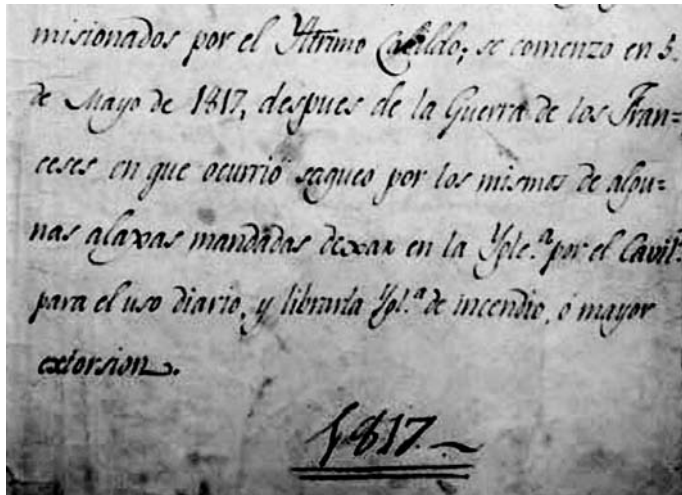 misionados por el Yttrimo Cabildo; se comenzó en 5.
de Mayo de 1817, despues de la Guerra de los Fran=
ceses en que ocurrió saqueo por los mismos de algu=
nas alaxas mandadas dexar en la Ygle.ª por el Cavil.º
para el uso diario, y librarla Ygl.ª de incendio, ó mayor
extorsion.
1817.